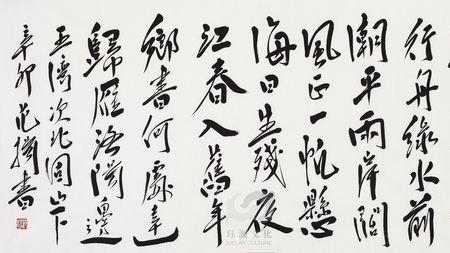 行舟綠水前
潮平兩岸闊
風正一帆懸
海日生殘夜
江春入舊年
鄉書何處達
歸雁洛陽邊
王灣次北固山下
辛卯范書
珏澜文化
JUELAN CULTURE